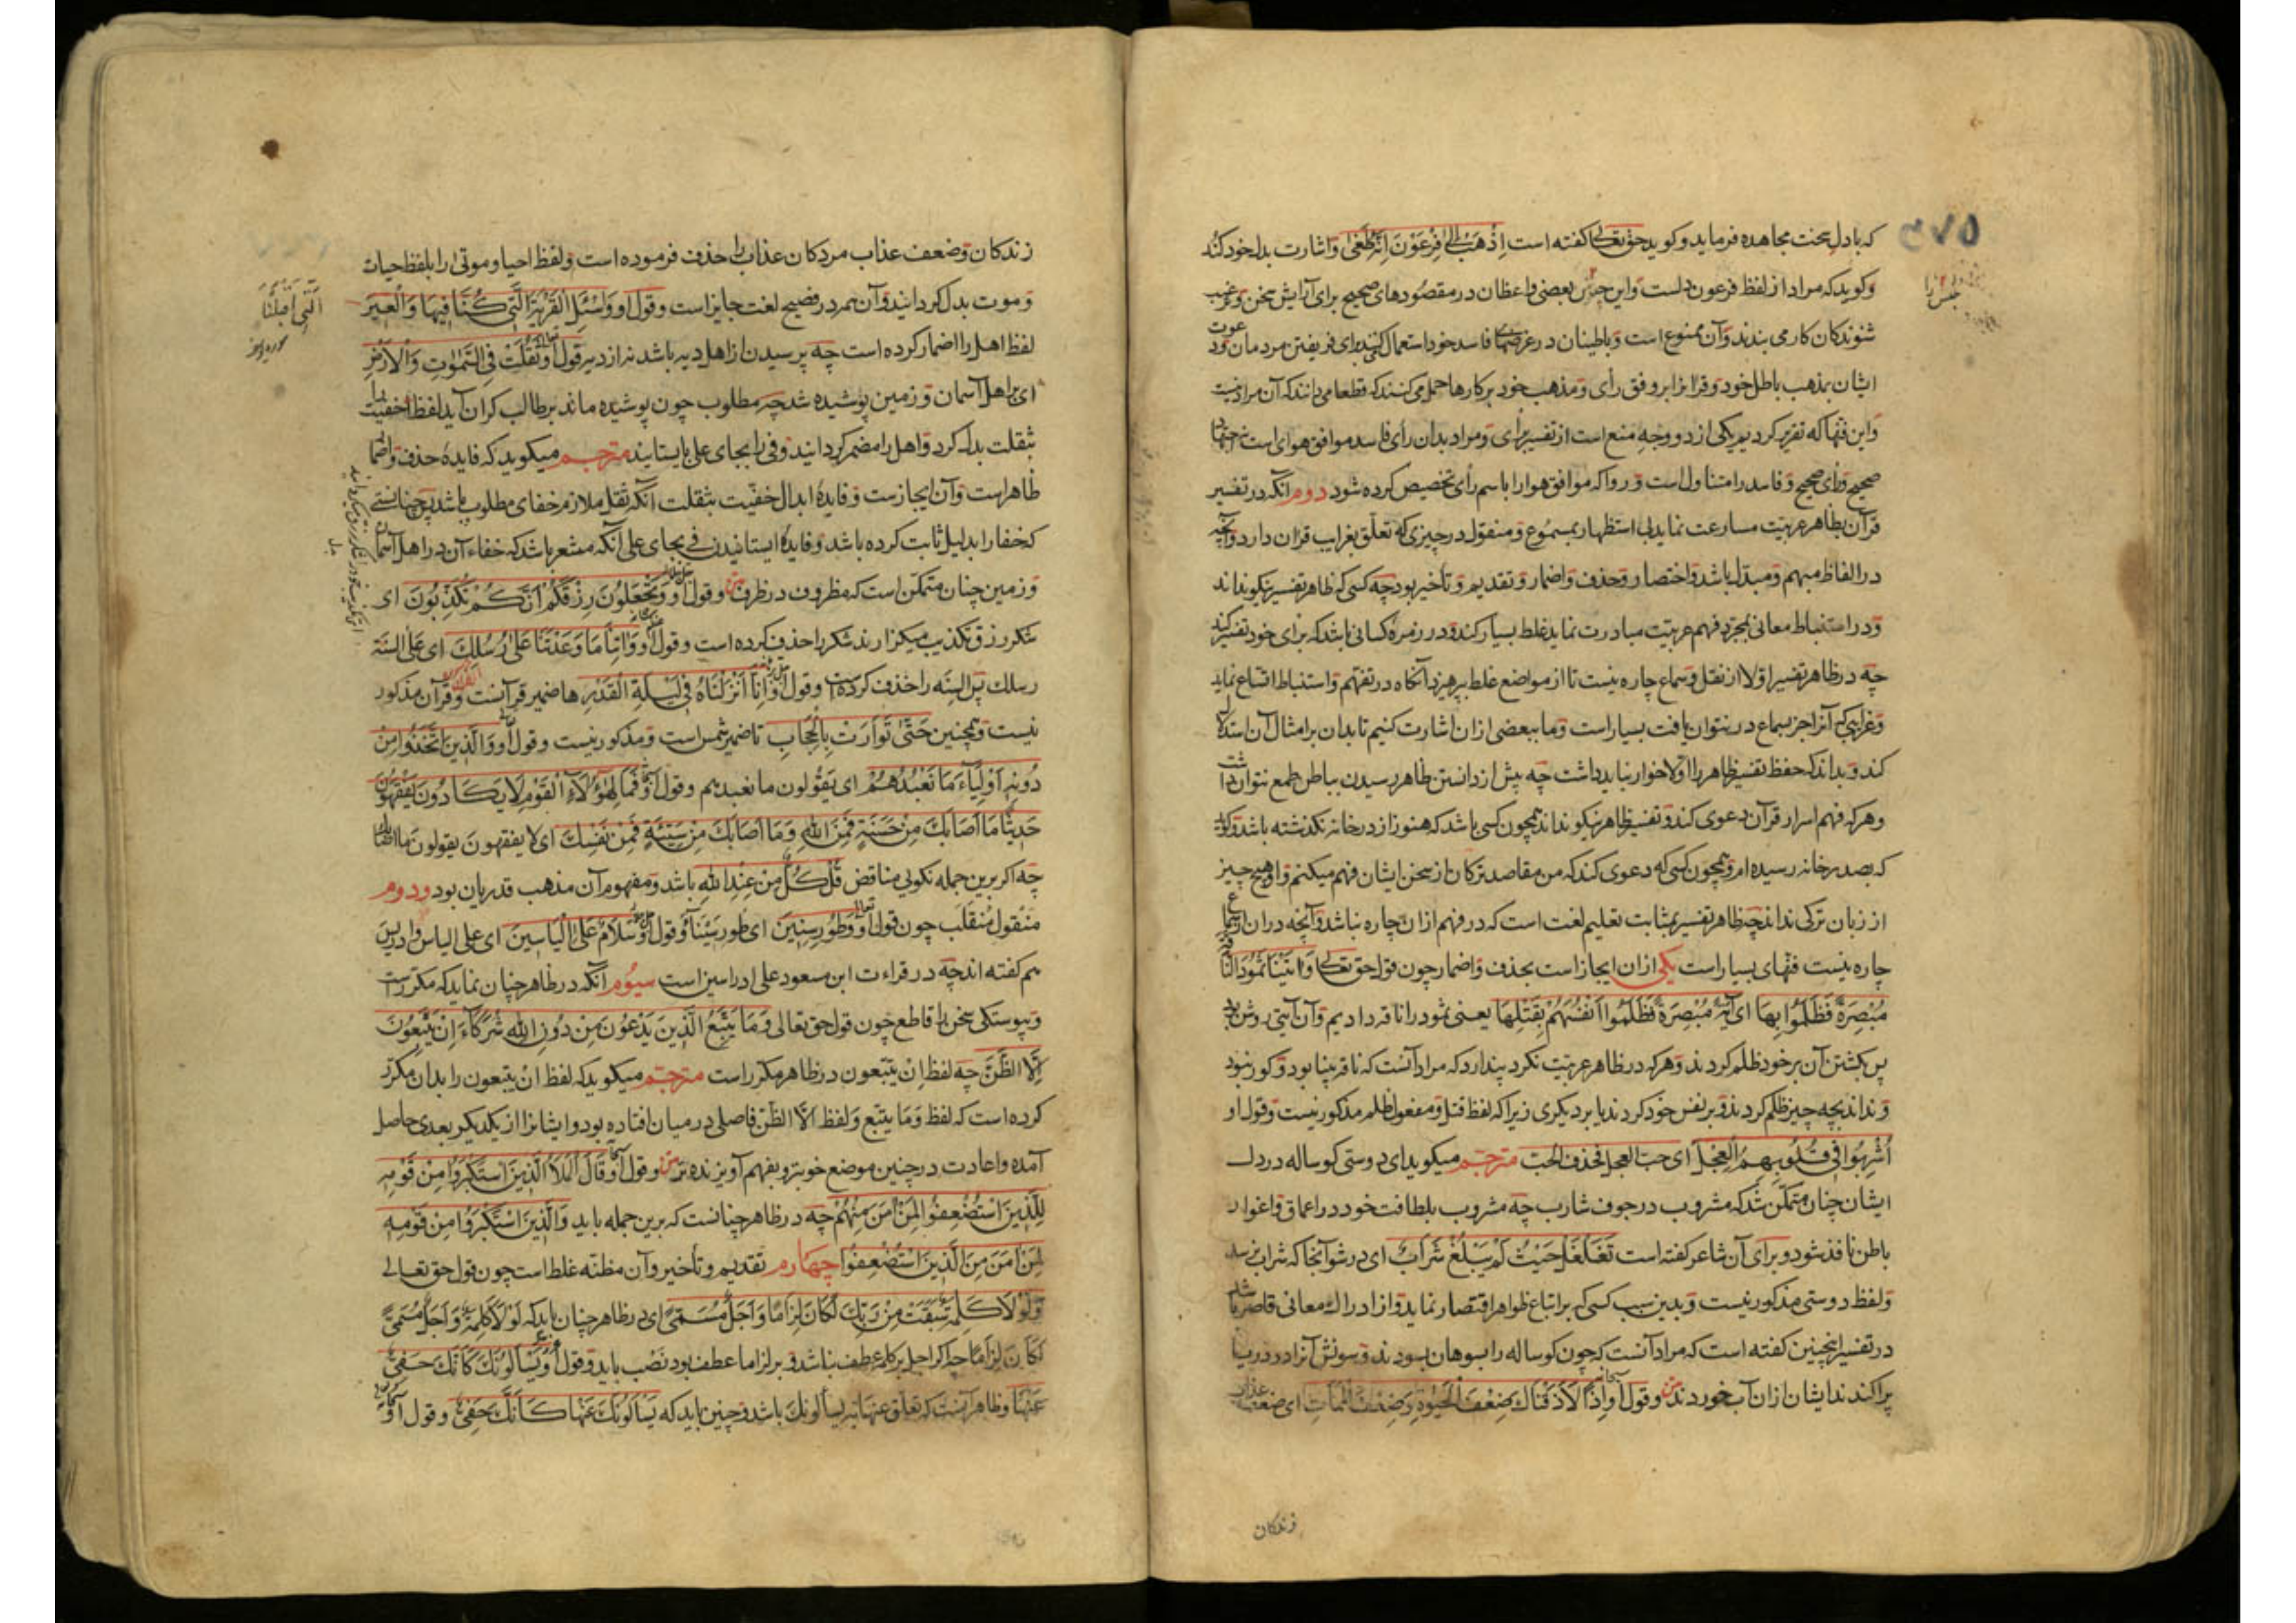 که بادل سخت مجاهده فرماید و کوید حق تعالی کفته است اِذْهَبْ اِلیٰ فِرْعَوْنَ اِنَّهُ طَغیٰ و اشارت بدل خود کند
و کوید که مراد از لفظ فرعون دلست و این جنس بعضی واعظان در مقصودهای صحیح برای آرایش سخن و ترغیب
شنوندکان کار می بندند و آن ممنوع است و باطینان در غرضها فاسد خود استعمال کنند برای فریفتن مردمان و دعوت
ایشان بمذهب باطل خود و قرانرا بر وفق رأی و مذهب خود بر کارها حمل می کنند که قطعا می دانند که آن مراد نیست
و این فنها که تقریر کردیم یکی از دو وجه منع است از تفسیر برای و مراد بدان رأی فاسد موافق هوای است نه اجتهاد
صحیح و رأی صحیح و فاسد را متناول است و روا که موافق هوا را باسم رأی تخصیص کرده شود دوم آنکه در تفسیر
قرآن بظاهر عربیت مسارعت نماید بی استظهار بمسموع و منقول در چیزی که تعلق بغرایب قران دارد و آنچه
در الفاظ مبهم و مبدل باشد و اختصار و حذف و اضمار و تقدیم و تأخیر بود چه کسی که ظاهر تفسیر نیکو نداند
و در استنباط معانی بمجرد فهم عربیت مبادرت نماید غلط بسیار کند و در زمره کسانی باشد که برای خود تفسیر کند
چه در ظاهر تفسیر اولا از نقل و سماع چاره نیست تا از مواضع غلط بپرهیزد آنکاه در تفهم و استنباط اتساع نماید
و غرایبی که آنرا جز بسماع در نتوان یافت بسیار است و ما ببعضی ازان اشارت کنیم تا بدان بر امثال آن استدلال
کند و بداند که حفظ تفسیر ظاهر را اولا خوار نباید داشت چه پیش از دانستن ظاهر رسیدن بباطن طمع نتوان داشت
و هر که فهم اسرار قرآن دعوی کند و تفسیر ظاهر نیکو نداند همچون کسی باشد که هنوز از در خانه نکذشته باشد و کوید
که بصدر خانه رسیده ام و همچون کسی که دعوی کند که من مقاصد ترکان از سخن ایشان فهم میکنم و او هیچ چیز
از زبان ترکی نداند چه ظاهر تفسیر بمثابت تعلیم لغت است که در فهم ازان چاره نباشد و آنچه دران از سماع
چاره نیست فنهای بسیار است یکی ازان ایجاز است بحذف و اضمار چون قول حق تعالی وَاٰتَیْنَا ثَمُودَ النَّاقَةَ
مُبْصِرَةً فَظَلَمُوا بِهَا ای آیة مُبْصِرَةً فَظَلَمُوا اَنْفُسَهُمْ بِقَتْلِهَا یعنی ثمود را ناقه دادیم و آن آیتی روشن بود
پس بکشتن آن بر خود ظلم کردند و هر که در ظاهر عربیت نکرد پندارد که مراد آنست که ناقه بینا بود و کور نبود
و نداند بچه چیز ظلم کردند و بر نفس خود کردند یا بر دیکری زیرا که لفظ قتل و مفعول ظلم مذکور نیست و قول او
اُشْرِبُوا فِی قُلُوبِهِمُ الْعِجْلَ ای حب العجل فحذف الحب مترجم میکوید ای دوستی کوساله در دل
ایشان چنان متمکن شد که مشروب در جوف شارب چه مشروب بلطافت خود در اعماق و اغوار
باطن نافذ شود و برای آن شاعر کفته است تَغَلْغَلَ حَیْثُ لَمْ یَبْلُغْ شَرَابٌ ای در شو آنجا که شراب نرسد
و لفظ دوستی مذکور نیست و بدین سبب کسی که بر اتباع ظواهر اقتصار نماید و از ادراک معانی قاصر باشد
در تفسیر اینچنین کفته است که مراد آنست که چون کوساله را بسوهان بسودند و سونش آنرا در دریا
پراکندند ایشان ازان آب خوردند و قول او اِذًا لَاَذَقْنَاکَ ضِعْفَ الْحَیٰوةِ وَضِعْفَ الْمَمَاتِ ای ضعف عذاب
زندکان
زندکان و ضعف عذاب مردکان عذاب را حذف فرموده است و لفظ احیا و موتی را بلفظ حیات
و موت بدل کردانید و آن همه در فصیح لغت جایز است و قول او وَاسْئَلِ الْقَرْیَةَ الَّتِی کُنَّا فِیهَا وَالْعِیرَ
الَّتِی اَقْبَلْنَا
لفظ اهل را اضمار کرده است چه پرسیدن از اهل دیه باشد نه از دیه قول او ثَقُلَتْ فِی السَّمٰوٰتِ وَالْاَرْضِ
ای بر اهل آسمان و زمین پوشیده شد چه مطلوب چون پوشیده ماند بر طالب کران آید لفظ خفیت را
بثقلت بدل کرد و اهل را مضمر کردانید و فی را بجای علی بایستانید مترجم میکوید که فایده حذف و اضمار
ظاهر است و آن ایجازست و فایده ابدال خفیت بثقلت آنکه ثقل ملازم خفای مطلوب باشد پس چنانستی
که خفا را بدلیل ثابت کرده باشد و فایده ایستانیدن فی بجای علی آنکه مشعر باشد که خفاء آن در اهل آسمان
و زمین چنان متمکن است که مظروف در ظرف و قول او وَتَجْعَلُونَ رِزْقَکُمْ اَنَّکُمْ تُکَذِّبُونَ ای
شکر رزق تکذیب میکزارند شکر را حذف کرده است و قول او وَاٰتِنَا مَا وَعَدْتَنَا عَلیٰ رُسُلِکَ ای عَلیٰ اَلْسِنَةِ
رسلک پس السنه را حذف کرده است و قول او اِنَّا اَنْزَلْنَاهُ فِی لَیْلَةِ الْقَدْرِ ها ضمیر قرآنست و قرآن مذکور
نیست و همچنین حَتّٰی تَوَارَتْ بِالْحِجَابِ تا ضمیر شمس است و مذکور نیست و قول او وَالَّذِینَ اتَّخَذُوا مِنْ
دُونِهِ اَوْلِیَاءَ مَا نَعْبُدُهُمْ ای یقولون ما نعبدهم و قول او فَمَالِ هٰؤُلَاءِ الْقَوْمِ لَا یَکَادُونَ یَفْقَهُونَ
حَدِیثًا مَا اَصَابَکَ مِنْ حَسَنَةٍ فَمِنَ اللهِ وَمَا اَصَابَکَ مِنْ سَیِّئَةٍ فَمِنْ نَفْسِکَ ای لا یفقهون یقولون ما اصابک
چه اکر برین جمله نکویی مناقض قُلْ کُلٌّ مِنْ عِنْدِ اللهِ باشد و مفهوم آن مذهب قدریان بود و دوم
منقول منقلب چون قول او وَطُورِ سِینِینَ ای طور سینا و قول او سَلَامٌ عَلیٰ اِلْیَاسِینَ ای علی الیاس و ادریس
هم کفته اند چه در قراءت ابن مسعود علی ادراسین است سیوم آنکه در ظاهر چنان نماید که مکررست
و پیوستکی سخن را قاطع چون قول حق تعالی وَمَا یَتَّبِعُ الَّذِینَ یَدْعُونَ مِنْ دُونِ اللهِ شُرَکَاءَ اِنْ یَتَّبِعُونَ
اِلَّا الظَّنَّ چه لفظ ان یتبعون در ظاهر مکرر است مترجم میکوید که لفظ ان یتبعون را بدان مکرر
کرده است که لفظ وَمَا یتبع و لفظ الا الظن فاصلی در میان افتاده بود و ایشانرا از یکدیکر بعدی حاصل
آمده و اعادت در چنین موضع خوبتر و بفهم آویزنده تر و قول او قَالَ الْمَلَاُ الَّذِینَ اسْتَکْبَرُوا مِنْ قَوْمِهِ
لِلَّذِینَ اسْتُضْعِفُوا لِمَنْ اٰمَنَ مِنْهُمْ چه در ظاهر چنانست که برین جمله باید وَالَّذِینَ اسْتَکْبَرُوا مِنْ قَوْمِهِ
لِمَنْ اٰمَنَ مِنَ الَّذِینَ اسْتُضْعِفُوا چهارم تقدیم و تأخیر و آن مظنه غلط است چون قول حق تعالی
وَلَوْلَا کَلِمَةٌ سَبَقَتْ مِنْ رَبِّکَ لَکَانَ لِزَامًا وَاَجَلٌ مُسَمًّی ای در ظاهر چنان باید که لَوْلَا کَلِمَةٌ وَاَجَلٌ مُسَمًّی
لَکَانَ لِزَامًا چه اکر اجل بر کلمه عطف نباشد و بر لزاما عطف بود نصب باید و قول او یَسْاَلُونَکَ کَاَنَّکَ حَفِیٌّ
عَنْهَا و ظاهر آنست که تعلق عنها به یسألونک باشد و چنین باید که یَسْاَلُونَکَ عَنْهَا کَاَنَّکَ حَفِیٌّ و قول او